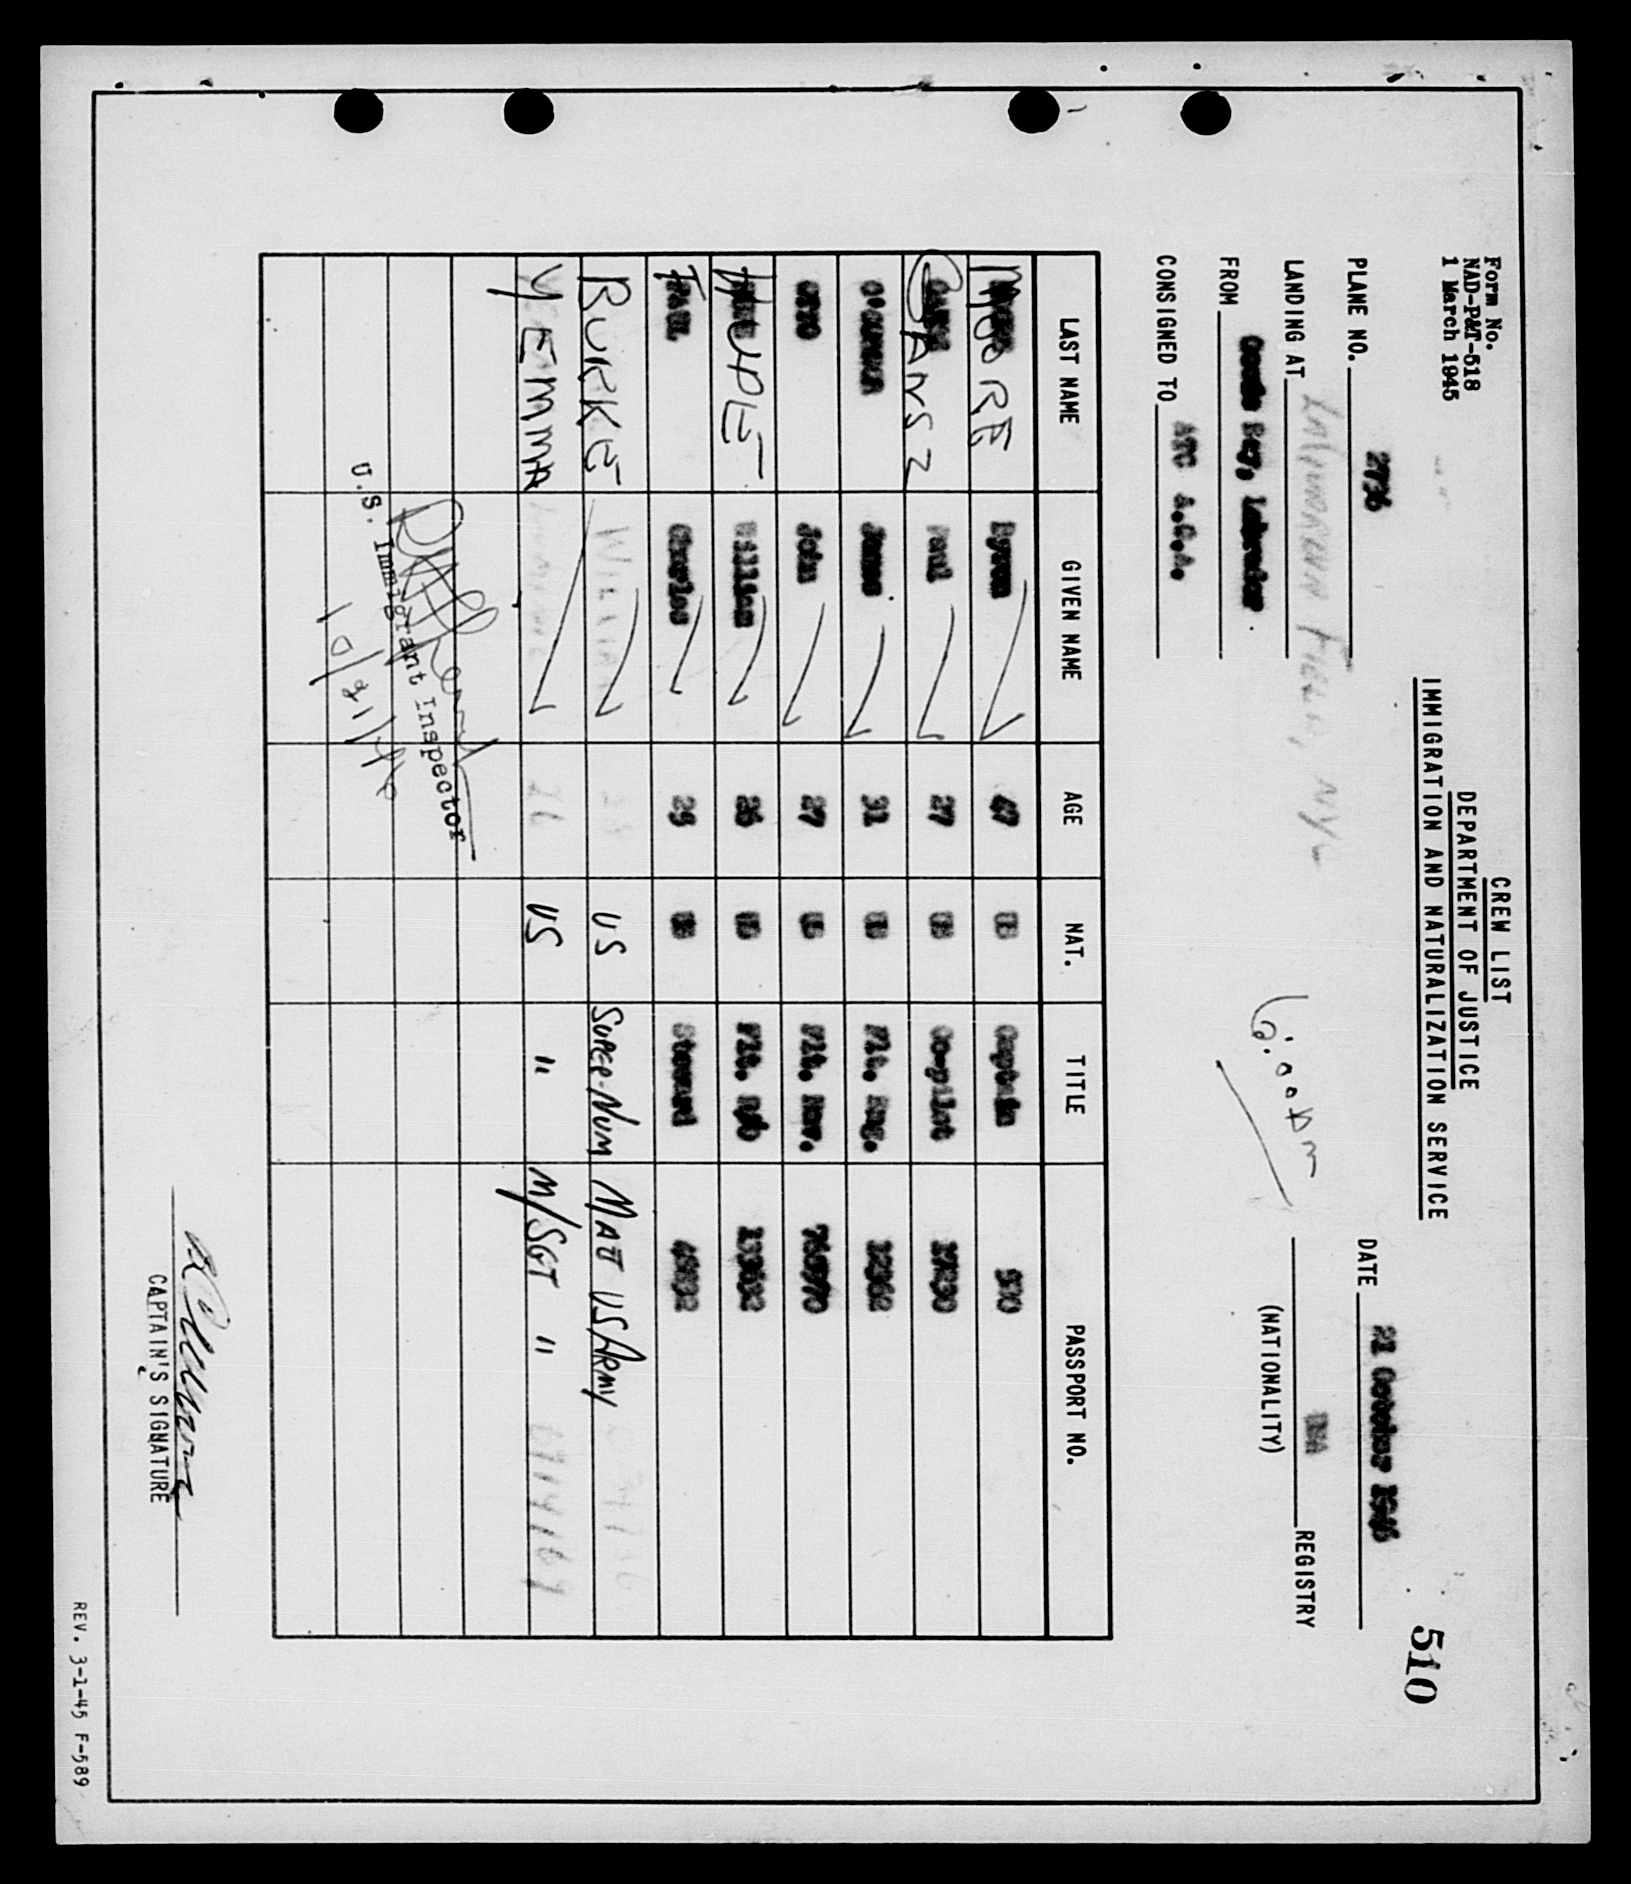 Form No.
NAD-P&T-518
1 March 1945
CREW LIST
DEPARTMENT OF JUSTICE
IMMIGRATION AND NATURALIZATION SERVICE
510
PLANE NO. 2736
DATE 21 October 1946
LANDING AT FIELD, NY
6:00 AM
USA REGISTRY
(NATIONALITY)
FROM Goose Bay, Labrador
CONSIGNED TO ATC A.C.A.
LAST NAME GIVEN NAME AGE NAT. TITLE PASSPORT NO.
MOORE Byron 47 US Captain 530
GANSZ Paul 27 US Co-pilot
O'CONNOR James 31 US Flt. Eng. 12362
John 27 US Flt. Nav.
HUPLE William 26 US Flt. R/O 133632
PAUL Charles 25 US Steward
BURKE WILLIAM US SUPER-NUM MAJ US ARMY
YEMMA 26 US " M/SGT "
U.S. Immigrant Inspector
10/21/46
CAPTAIN'S SIGNATURE
REV. 3-1-45 F-589